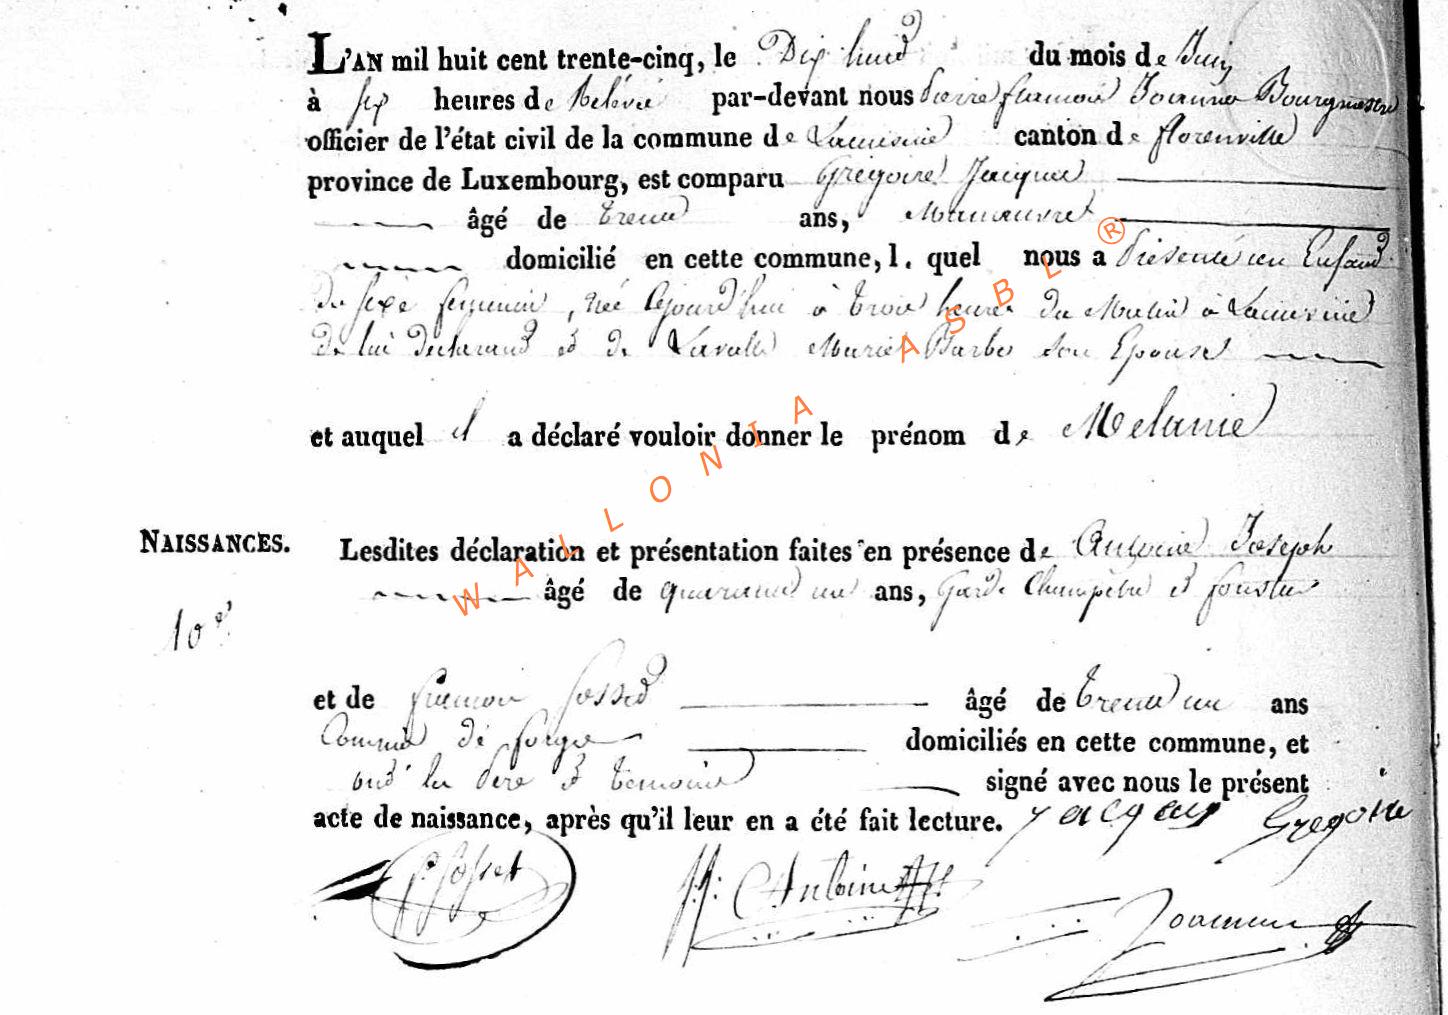 L'AN mil huit cent trente-cinq, le Dix huit du mois de Juin
à six heures de Relévée par-devant nous Pierre françois Joannes Bourgmestre
officier de l'état civil de la commune de Lacuisine canton de florenville
province de Luxembourg, est comparu Grégoire Jacques
âgé de trente ans, Manoeuvre
domicilié en cette commune, l. quel nous a présenté un Enfant
du sexe feminin, née cejourd'hui à trois heures du Matin à Lacuisine
de lui declarant et de Lavalle Marie Barbe son Epouse
et auquel il a déclaré vouloir donner le prénom de Melanie
NAISSANCES.
Lesdites déclaration et présentation faites en présence de Antoine Joseph
âgé de quarante un ans, Garde Champêtre et forestier
10e
et de françois Gosset âgé de trente un ans
Commis de forges domiciliés en cette commune, et
ont les père et temoins signé avec nous le présent
acte de naissance, après qu'il leur en a été fait lecture. jacques Gregoire
Gosset JJ: Antoine Joannes
WALLONIA ASBL ®